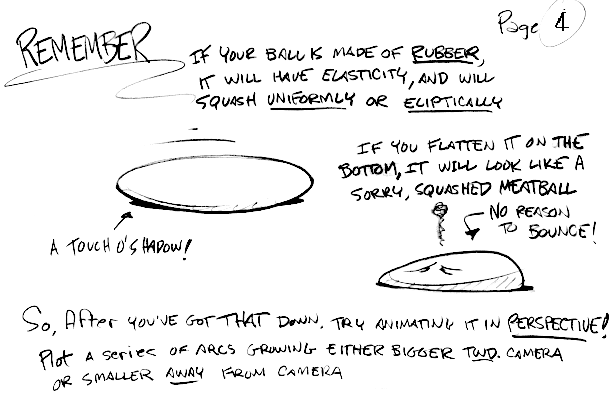 Page 4
REMEMBER
IF YOUR BALL IS MADE OF RUBBER,
IT WILL HAVE ELASTICITY, AND WILL
SQUASH UNIFORMLY OR ELIPTICALLY
IF YOU FLATTEN IT ON THE
BOTTOM, IT WILL LOOK LIKE A
SORRY, SQUASHED MEATBALL
NO REASON
TO BOUNCE!
A TOUCH O' SHADOW!
So, After YOU'VE GOT THAT DOWN, TRY ANIMATING IT IN PERSPECTIVE!
Plot A series OF ARCS GROWING EITHER BIGGER TWD. CAMERA
OR SMALLER AWAY FROM CAMERA